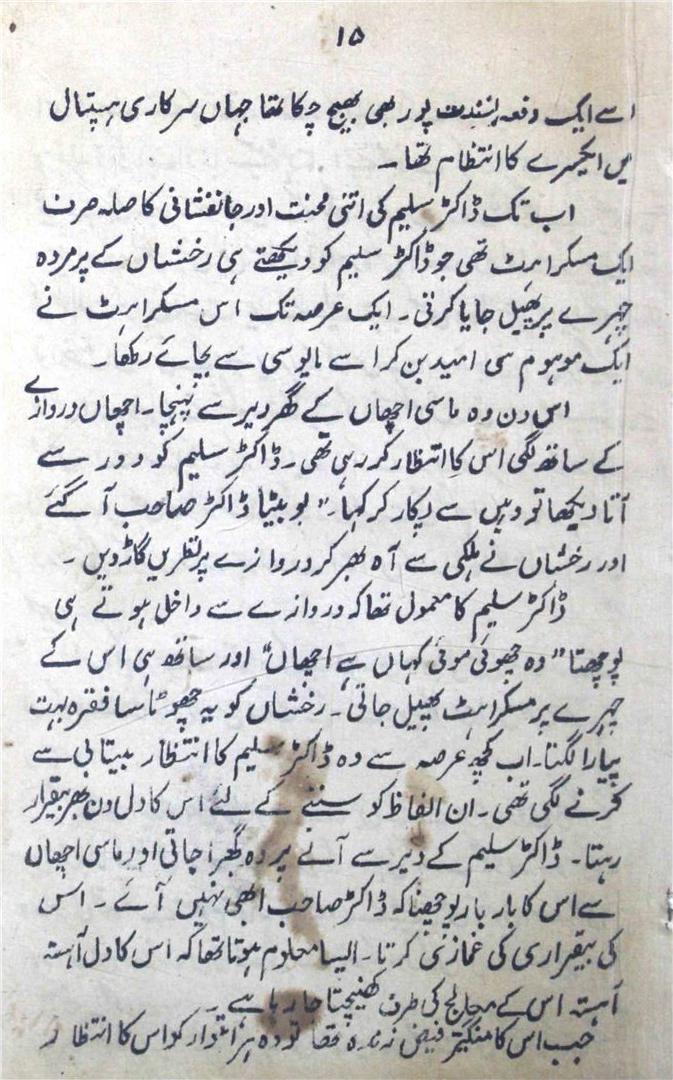 ۱۵
اسے ایک دفعہ پور بھی بھیج چکا تھا جہاں سرکاری ہسپتال
میں ایکسرے کا انتظام تھا۔
اب تک ڈاکٹر سلیم کی اتنی محنت اور جانفشانی کا صلہ صرف
ایک مسکراہٹ تھی جو ڈاکٹر سلیم کو دیکھتے ہی رخشاں کے پرمردہ
چہرے پر پھیل جایا کرتی۔ ایک عرصہ تک اس مسکراہٹ نے
ایک موہوم سی امید بن کر اسے مایوسی سے بچائے رکھا۔
اس دن وہ ماسی اچھاں کے گھر دیر سے پہنچا۔ اچھاں دروازے
کے ساتھ لگی اس کا انتظار کر رہی تھی۔ ڈاکٹر سلیم کو دور سے
آتا دیکھا تو وہیں سے پکار کر کہا۔" لو بیٹا ڈاکٹر صاحب آ گئے
اور رخشاں نے ہلکی سے آہ بھر کر دروازے پر نظریں گاڑ دیں۔
ڈاکٹر سلیم کا معمول تھا کہ دروازے سے داخل ہوتے ہی
پوچھتا "وہ چھوئی موئی کہاں ہے اچھاں" اور ساتھ ہی اس کے
چہرے پر مسکراہٹ پھیل جاتی۔ رخشاں کو یہ چھوٹا سا فقرہ بہت
پیارا لگتا۔ اب کچھ عرصہ سے وہ ڈاکٹر سلیم کا انتظار بیتابی سے
کرنے لگی تھی۔ ان الفاظ کو سننے کے لئے اس کا دل دن بھر بیقرار
رہتا۔ ڈاکٹر سلیم کے دیر سے آنے پر وہ گھبرا جاتی اور ماسی اچھاں
سے اس کا بار بار پوچھنا کہ ڈاکٹر صاحب ابھی نہیں آئے۔ اس
کی بیقراری کی غمازی کرتا۔ ایسا معلوم ہوتا تھا کہ اس کا دل آہستہ
آہستہ اس کے معالج کی طرف کھنچتا جا رہا ہے۔
جب اس کا منگیتر فیض زندہ تھا تو وہ ہر اتوار کو اس کا انتظار